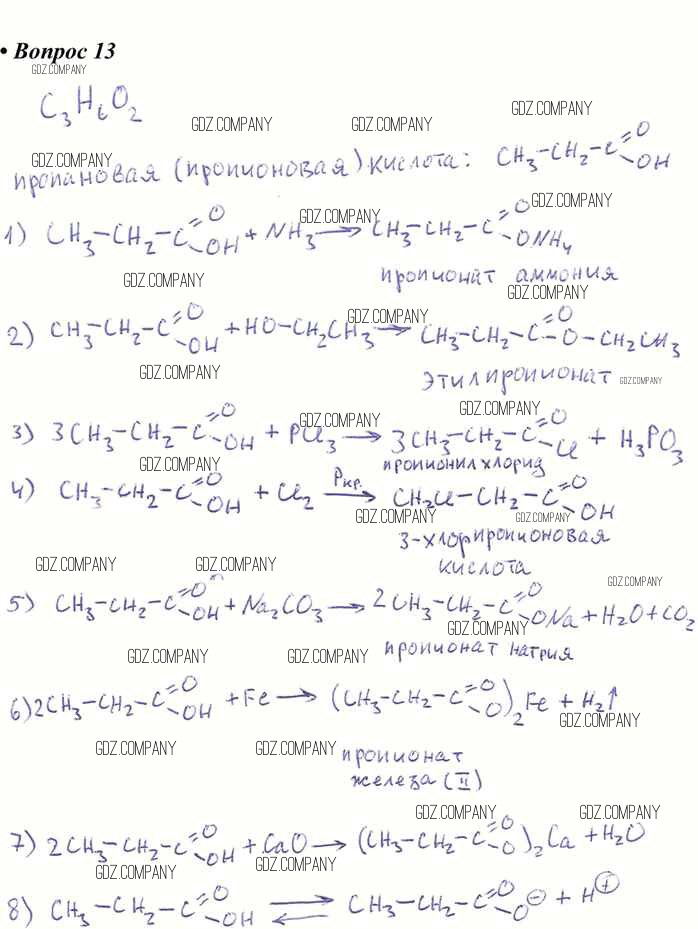 • Вопрос 13
GDZ.COMPANY
C₃H₆O₂
GDZ.COMPANY GDZ.COMPANY GDZ.COMPANY
GDZ.COMPANY
пропановая (пропионовая) кислота: CH₃-CH₂-C=O-OH
GDZ.COMPANY GDZ.COMPANY
1) CH₃-CH₂-C=O-OH + NH₃ → CH₃-CH₂-C=O-ONH₄
GDZ.COMPANY пропионат аммония
GDZ.COMPANY
GDZ.COMPANY
2) CH₃-CH₂-C=O-OH + HO-CH₂CH₃ → CH₃-CH₂-C=O-O-CH₂CH₃
GDZ.COMPANY этилпропионат GDZ.COMPANY
GDZ.COMPANY GDZ.COMPANY
3) 3CH₃-CH₂-C=O-OH + PCl₃ → 3CH₃-CH₂-C=O-Cl + H₃PO₃
GDZ.COMPANY пропионилхлорид
4) CH₃-CH₂-C=O-OH + Cl₂ Pкр. → CH₂Cl-CH₂-C=O-OH
GDZ.COMPANY GDZ.COMPANY
3-хлорпропионовая
кислота
GDZ.COMPANY GDZ.COMPANY GDZ.COMPANY
5) CH₃-CH₂-C=O-OH + Na₂CO₃ → 2CH₃-CH₂-C=O-ONa + H₂O + CO₂
GDZ.COMPANY
пропионат натрия
GDZ.COMPANY GDZ.COMPANY
6) 2CH₃-CH₂-C=O-OH + Fe → (CH₃-CH₂-C=O-O)₂Fe + H₂↑
GDZ.COMPANY
GDZ.COMPANY GDZ.COMPANY пропионат
железа (II)
GDZ.COMPANY GDZ.COMPANY
7) 2CH₃-CH₂-C=O-OH + CaO → (CH₃-CH₂-C=O-O)₂Ca + H₂O
GDZ.COMPANY GDZ.COMPANY
8) CH₃-CH₂-C=O-OH ⇄ CH₃-CH₂-C=O-O⊖ + H⊕